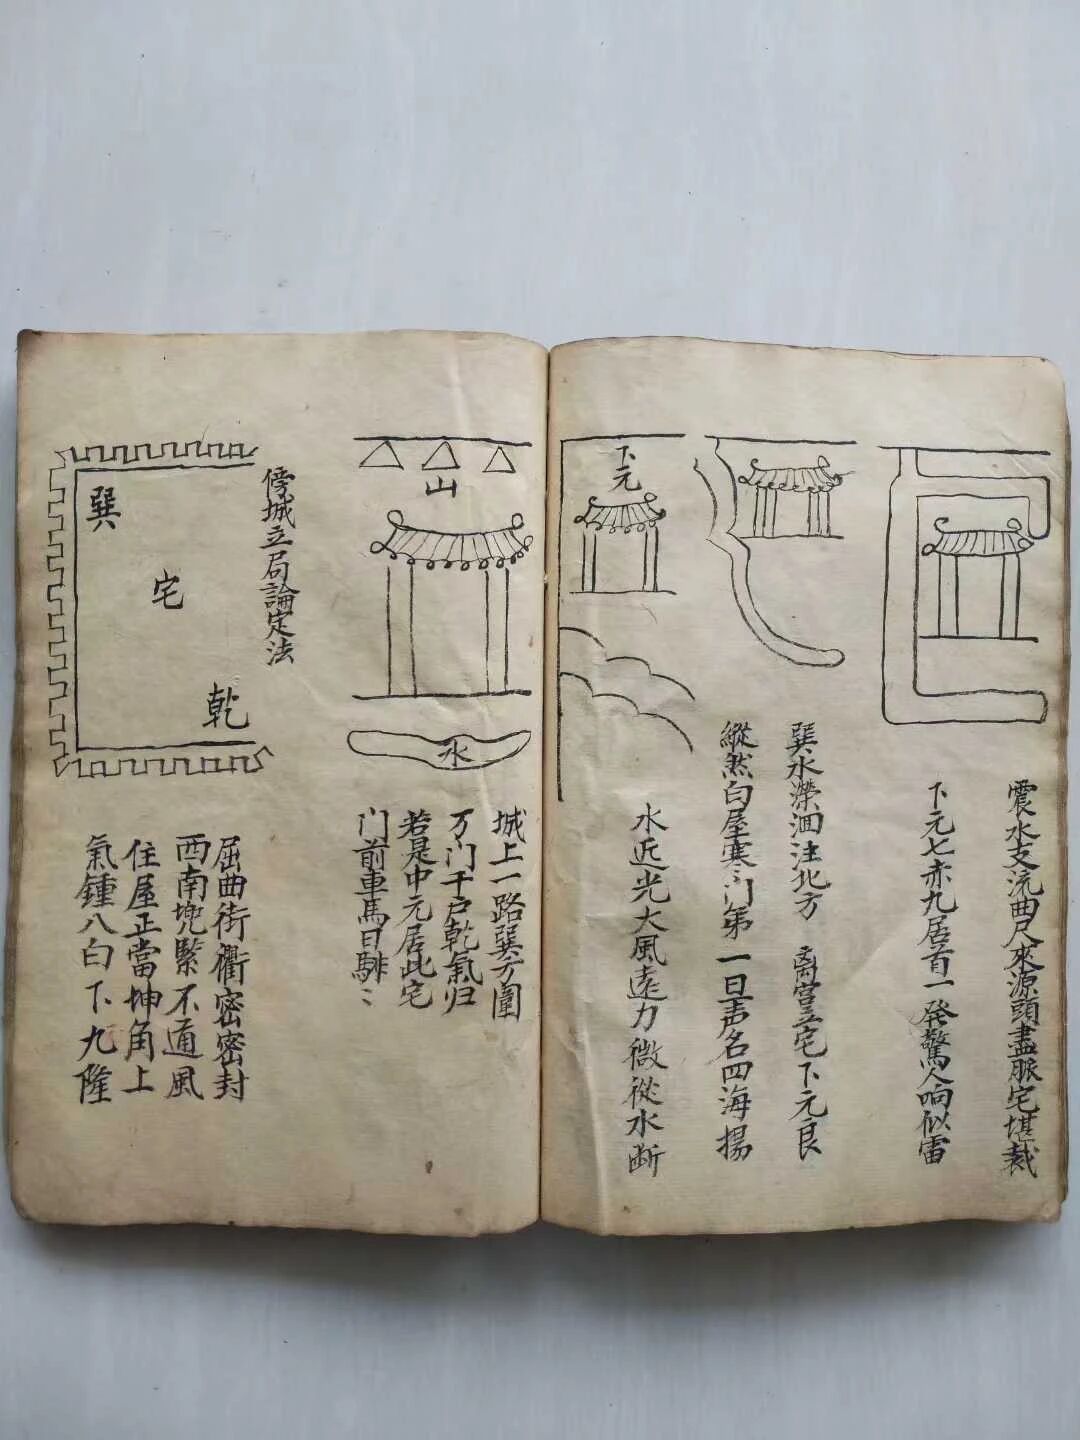 震水支流曲尺來源頭盡脈宅堪裁
下元七赤九居首一發驚人响似雷
巽水瀠洄注北方 离宮立宅下元良
縱然白屋寒门第 一旦声名四海揚
下元
水近光大風遠力微從水断
山
水
城上一路巽方圍
万门千戸乾氣归
若是中元居此宅
门前車馬日騑〻
傍城立局論定法
巽
宅
乾
屈曲街衢密密封
西南兠緊不通風
住屋正當坤角上
氣鍾八白下九隆